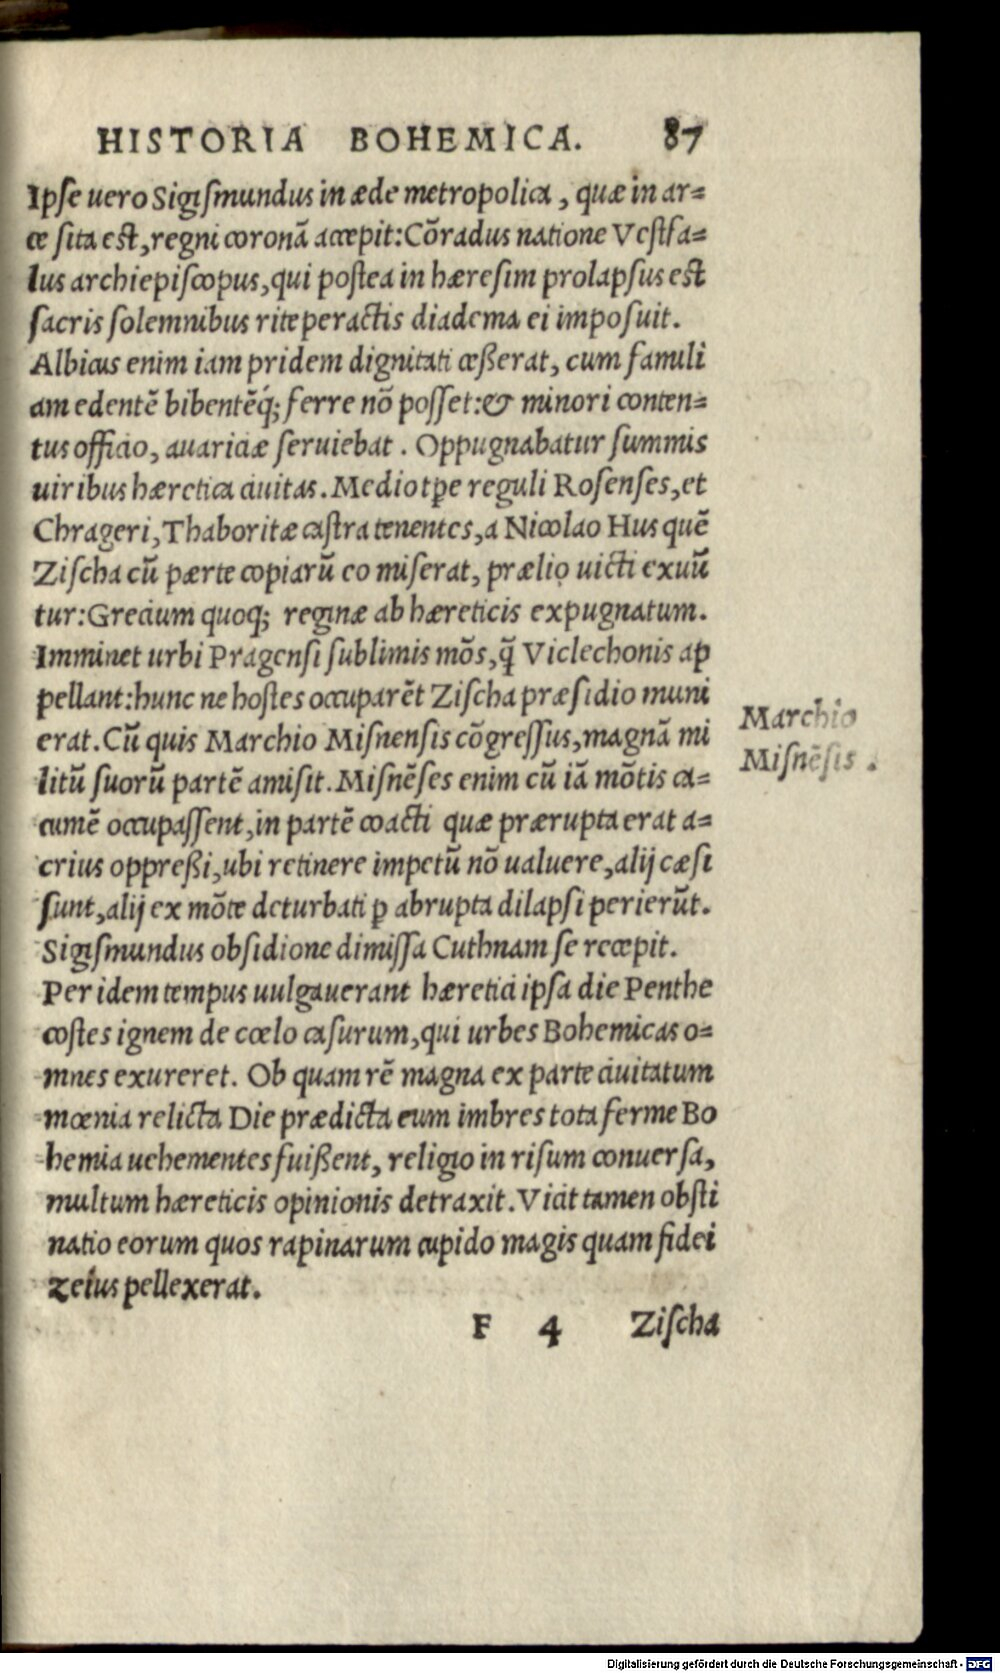 HISTORIA BOHEMICA. 87
Ipſe uero Sigiſmundus in æde metropolica, quæ in ar=
ce ſita eſt, regni coronã accepit: Cõradus natione Veſtfa=
lus archiepiſcopus, qui poſtea in hæreſim prolapſus eſt
ſacris ſolemnibus rite peractis diadema ei impoſuit.
Albicus enim iam pridem dignitati ceßerat, cum famili
am edentẽ bibentẽq́; ferre nõ poſſet: & minori conten=
tus officio, auariciæ ſeruiebat. Oppugnabatur ſummis
uiribus hæretica ciuitas. Medio tꝑe reguli Roſenſes, et
Chrageri, Thaboritæ caſtra tenentes, a Nicolao Hus quẽ
Ziſcha cũ pærte copiarũ eo miſerat, prælio uicti exuũ
tur: Grecium quoq; reginæ ab hæreticis expugnatum.
Imminet urbi Pragenſi ſublimis mõs, q̃ Viclechonis ap
pellant: hunc ne hoſtes occuparẽt Ziſcha præſidio muni
erat. Cũ quis Marchio Miſnenſis cõgreſſus, magnã mi
litũ ſuorũ partẽ amiſit. Miſnẽſes enim cũ iã mõtis ca=
cumẽ occupaſſent, in partẽ coacti quæ prærupta erat a=
crius oppreßi, ubi retinere impetũ nõ ualuere, alij cæſi
ſunt, alij ex mõte deturbati ꝑ abrupta dilapſi perierũt.
Sigiſmundus obſidione dimiſſa Cuthnam ſe recepit.
Per idem tempus uulgauerant hæretici ipſa die Penthe
coſtes ignem de cœlo caſurum, qui urbes Bohemicas o=
mnes exureret. Ob quam rẽ magna ex parte ciuitatum
mœnia relicta Die prædicta eum imbres tota ferme Bo
hemia uehementes fuißent, religio in riſum conuerſa,
multum hæreticis opinionis detraxit. Vicit tamen obſti
natio eorum quos rapinarum cupido magis quam fidei
zelus pellexerat.
F 4 Ziſcha
Marchio
Miſnẽſis.
Digitalisierung gefördert durch die Deutsche Forschungsgemeinschaft - DFG